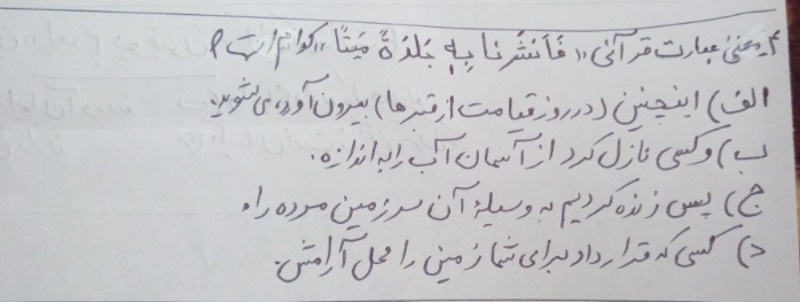 ۴. معنی عبارت قرآنی «فَاَنشَرنا بِهِ بَلدَةً مَیتًا» کدام است؟
الف) اینچنین (در روز قیامت از قبرها) بیرون آورده می شوید.
ب) و کسی نازل کرد از آسمان آب را به اندازه.
ج) پس زنده کردیم به وسیلهٔ آن سرزمین مرده را.
د) کسی که قرار داد برای شما زمین را محل آرامش.